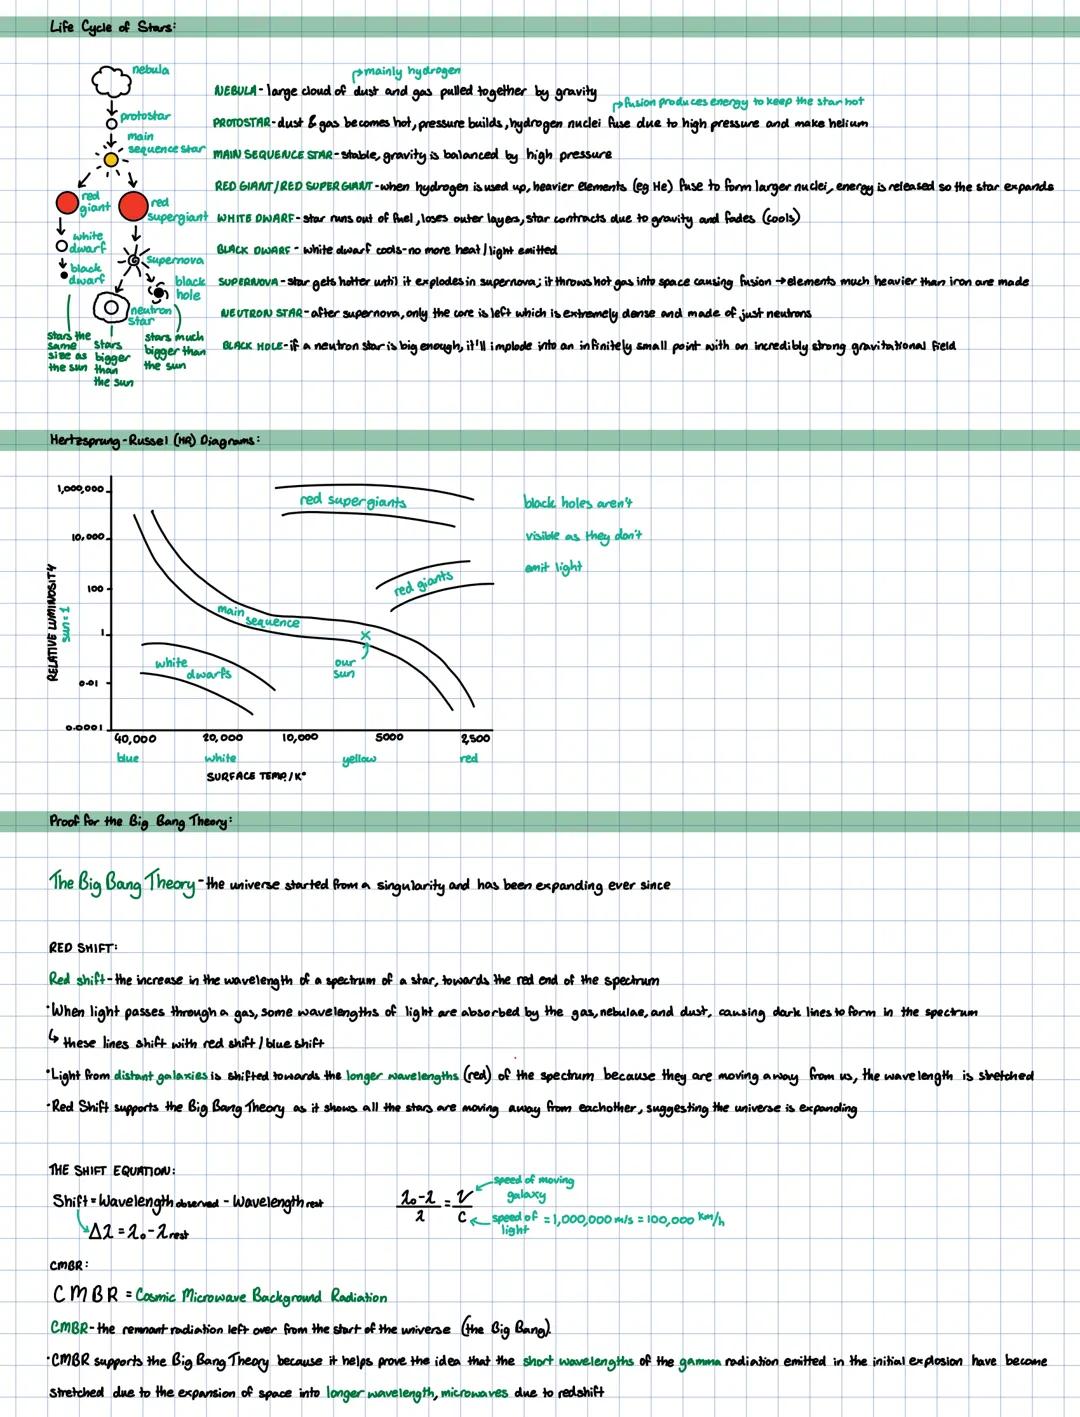 Life Cycle of Stars:
nebula
protostar
main
sequence star
red
giant
red
supergiant
white
dwarf
supernova
black
dwarf
black
hole
neutron
star
stars the
same
size as
the sun
stars
bigger
than
the sun
stars much
bigger than
the sun
mainly hydrogen
NEBULA - large cloud of dust and gas pulled together by gravity
fusion produces energy to keep the star hot
PROTOSTAR - dust & gas becomes hot, pressure builds, hydrogen nuclei fuse due to high pressure and make helium
MAIN SEQUENCE STAR - stable, gravity is balanced by high pressure
RED GIANT/RED SUPER GIANT - when hydrogen is used up, heavier elements (eg He) fuse to form larger nuclei, energy is released so the star expands
WHITE DWARF - star runs out of fuel, loses outer layers, star contracts due to gravity and fades (cools)
BLACK DWARF - white dwarf cools - no more heat/light emitted
SUPERNOVA - star gets hotter until it explodes in supernova; it throws hot gas into space causing fusion → elements much heavier than iron are made
NEUTRON STAR - after supernova, only the core is left which is extremely dense and made of just neutrons
BLACK HOLE - if a neutron star is big enough, it'll implode into an infinitely small point with an incredibly strong gravitational field
Hertzsprung-Russel (HR) Diagrams:
RELATIVE LUMINOSITY
sun = 1
1,000,000
10,000
100
1
0.01
0.0001
red supergiants
red giants
main
sequence
white
dwarfs
our
sun
black holes aren't
visible as they don't
emit light
40,000 20,000 10,000 5000 2,500
blue white yellow red
SURFACE TEMP/K°
Proof for the Big Bang Theory:
The Big Bang Theory - the universe started from a singularity and has been expanding ever since
RED SHIFT:
Red shift - the increase in the wavelength of a spectrum of a star, towards the red end of the spectrum
· When light passes through a gas, some wavelengths of light are absorbed by the gas, nebulae, and dust, causing dark lines to form in the spectrum
↳ these lines shift with red shift / blue shift
· Light from distant galaxies is shifted towards the longer wavelengths (red) of the spectrum because they are moving away from us, the wavelength is stretched
· Red Shift supports the Big Bang Theory as it shows all the stars are moving away from eachother, suggesting the universe is expanding
THE SHIFT EQUATION:
Shift = Wavelength observed - Wavelength rest
Δλ = λo - λrest
λo-λ / λ = v / c
speed of moving
galaxy
speed of = 1,000,000 m/s = 100,000 km/h
light
CMBR:
CMBR = Cosmic Microwave Background Radiation
CMBR - the remnant radiation left over from the start of the universe (the Big Bang).
· CMBR supports the Big Bang Theory because it helps prove the idea that the short wavelengths of the gamma radiation emitted in the initial explosion have become
stretched due to the expansion of space into longer wavelength, microwaves due to redshift